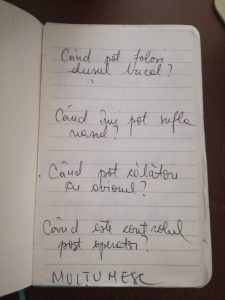 Când pot folosi
dușul bucal?
Când îmi pot sufla
nasul?
Când pot călători
cu avionul?
Când este controlul
post operator?
MULȚUMESC